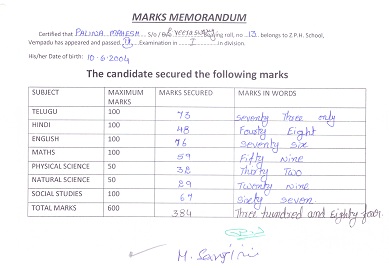 MARKS MEMORANDUM
Certified that PALIVA MAHESH S/o / D/o veera swamy bearing roll, no 13 belongs to Z.P.H. School,
Vempadu has appeared and passed Examination in I in division.
His/her Date of birth: 10-6-2004
The candidate secured the following marks
SUBJECT MAXIMUM MARKS MARKS SECURED MARKS IN WORDS
TELUGU 100 73 seventy Three only
HINDI 100 48 Fourty Eight
ENGLISH 100 76 seventy six
MATHS 100 59 Fifty Nine
PHYSICAL SCIENCE 50 32 Thirty Two
NATURAL SCIENCE 50 29 Twenty nine
SOCIAL STUDIES 100 67 Sixty seven
TOTAL MARKS 600 384 Three hundred and Eighty four